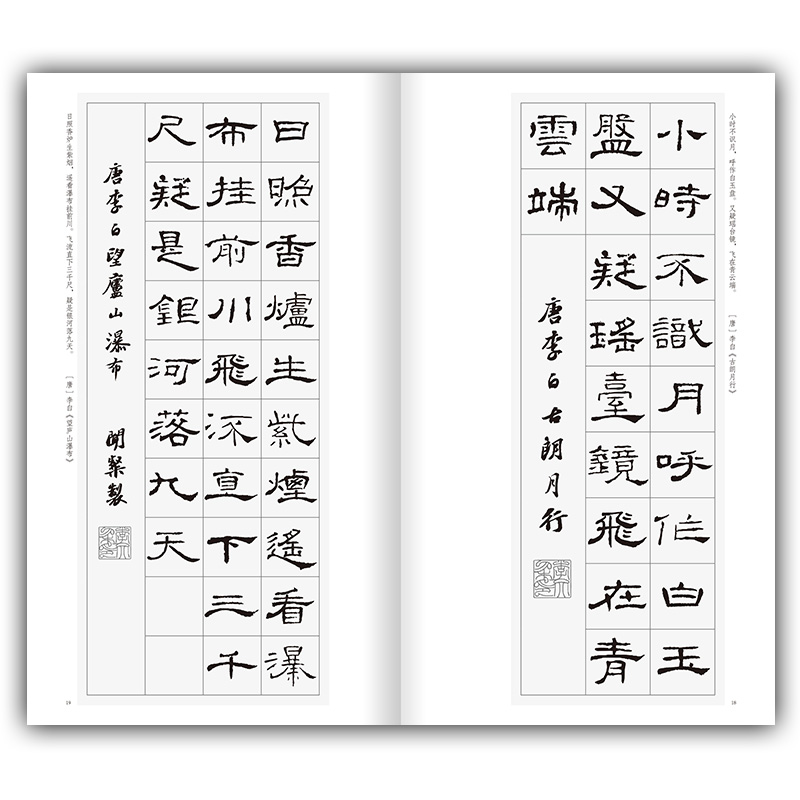 小时不识月，呼作白玉盘。又疑瑶台镜，飞在青云端。 [唐] 李白《古朗月行》
小時不識月呼作白玉
盤又疑瑤臺鏡飛在青
雲端
唐李白古朗月行
18
日照香爐生紫煙遙看瀑
布挂前川飛流直下三千
尺疑是銀河落九天
唐李白望廬山瀑布
日照香炉生紫烟，遥看瀑布挂前川。飞流直下三千尺，疑是银河落九天。 [唐] 李白《望庐山瀑布》
19